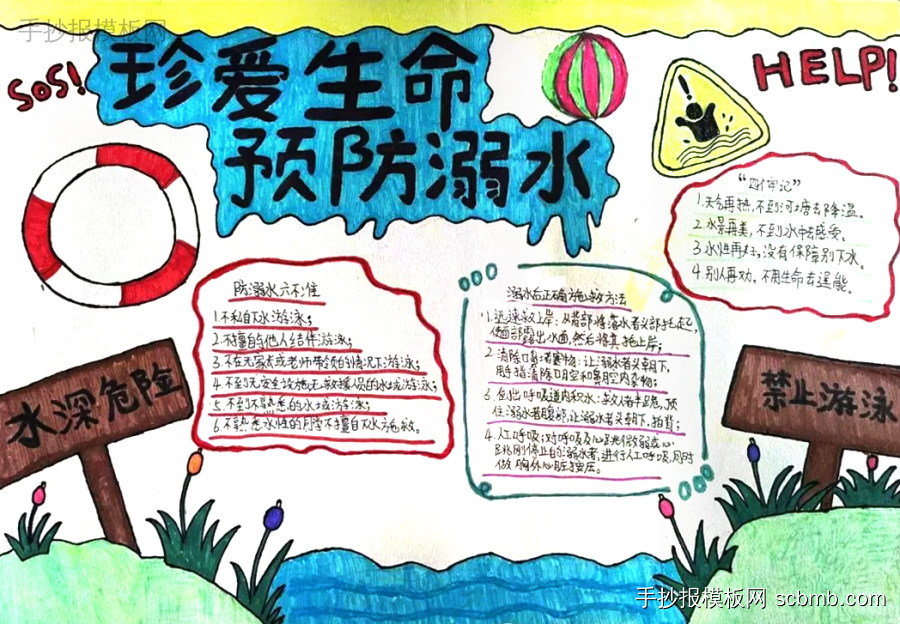 手抄报模板网
SOS!
珍爱生命
预防溺水
HELP!
"四个牢记"
1.天气再热,不到河塘去降温。
2.水景再美,不到水中去感受。
3.水性再好,没有保障别下水。
4.别人再劝,不用生命去逞能。
防溺水六不准
1.不私自下水游泳;
2.不擅自与他人结伴游泳;
3.不在无家长或老师带领的情况下游泳;
4.不到无安全设施、无救援人员的水域游泳;
5.不到不熟悉的水域游泳;
6.不熟悉水性的同学不擅自下水施救。
溺水后正确施救方法
1.迅速救上岸:从背部将落水者头部托起,
使面部露出水面,然后将其拖上岸;
2.清除口鼻堵塞物:让溺水者头朝下,
用手指清除口腔和鼻腔内杂物;
3.倒出呼吸道内积水:救人者半跪,顶
住溺水者腹部,让溺水者头朝下,拍背;
4.人工呼吸:对呼吸及心跳微弱或心
跳刚停止的溺水者,进行人工呼吸,同时
做胸外心脏按压。
水深危险
禁止游泳
手抄报模板网 scbmb.com